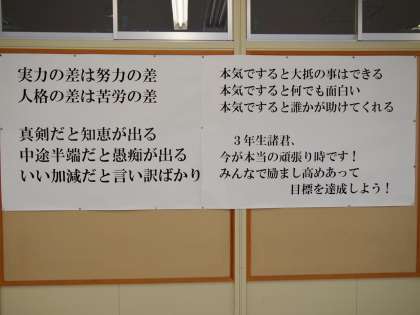 実力の差は努力の差
人格の差は苦労の差
真剣だと知恵が出る
中途半端だと愚痴が出る
いい加減だと言い訳ばかり
本気ですると大抵の事はできる
本気ですると何でも面白い
本気ですると誰かが助けてくれる
３年生諸君、
今が本当の頑張り時です！
みんなで励まし高めあって
目標を達成しよう！